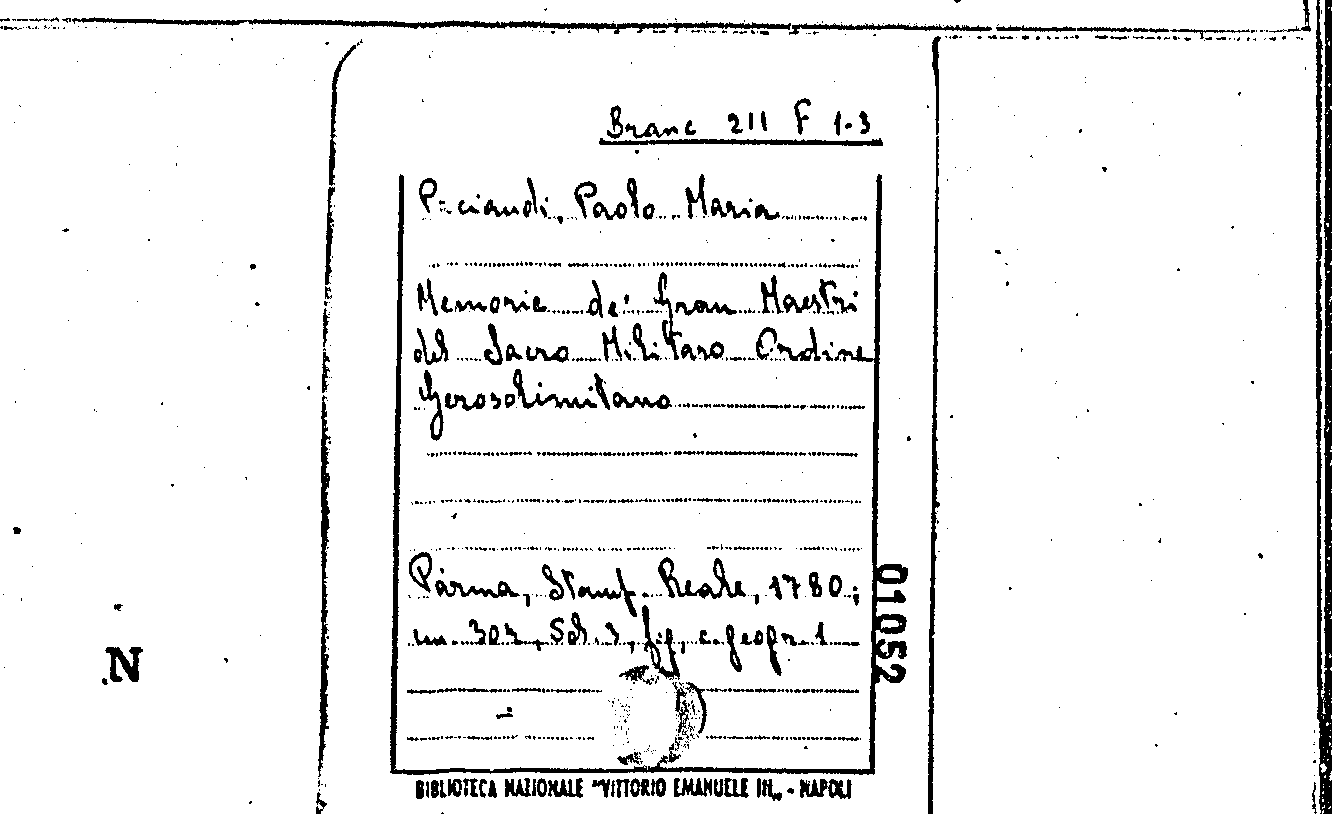 Branc 211 F 1-3
Paciaudi, Paolo Maria
Memorie de' Gran Maestri
del Sacro Militaro Ordine
Gerosolimitano
Parma, Stamp. Reale, 1780;
cm. 303, Vol. 3, fig, c. geogr. 1
01052
N
BIBLIOTECA NAZIONALE "VITTORIO EMANUELE III„ - NAPOLI